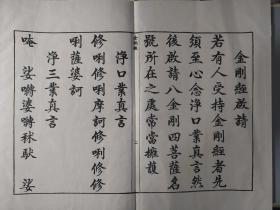 金剛經啟請
若有人受持金剛經者先
須至心念淨口業真言然
後啟請八金剛四菩薩名
號所在之處常當擁護
淨口業真言
修唎修唎摩訶修唎修修
唎薩婆訶
淨三業真言
唵